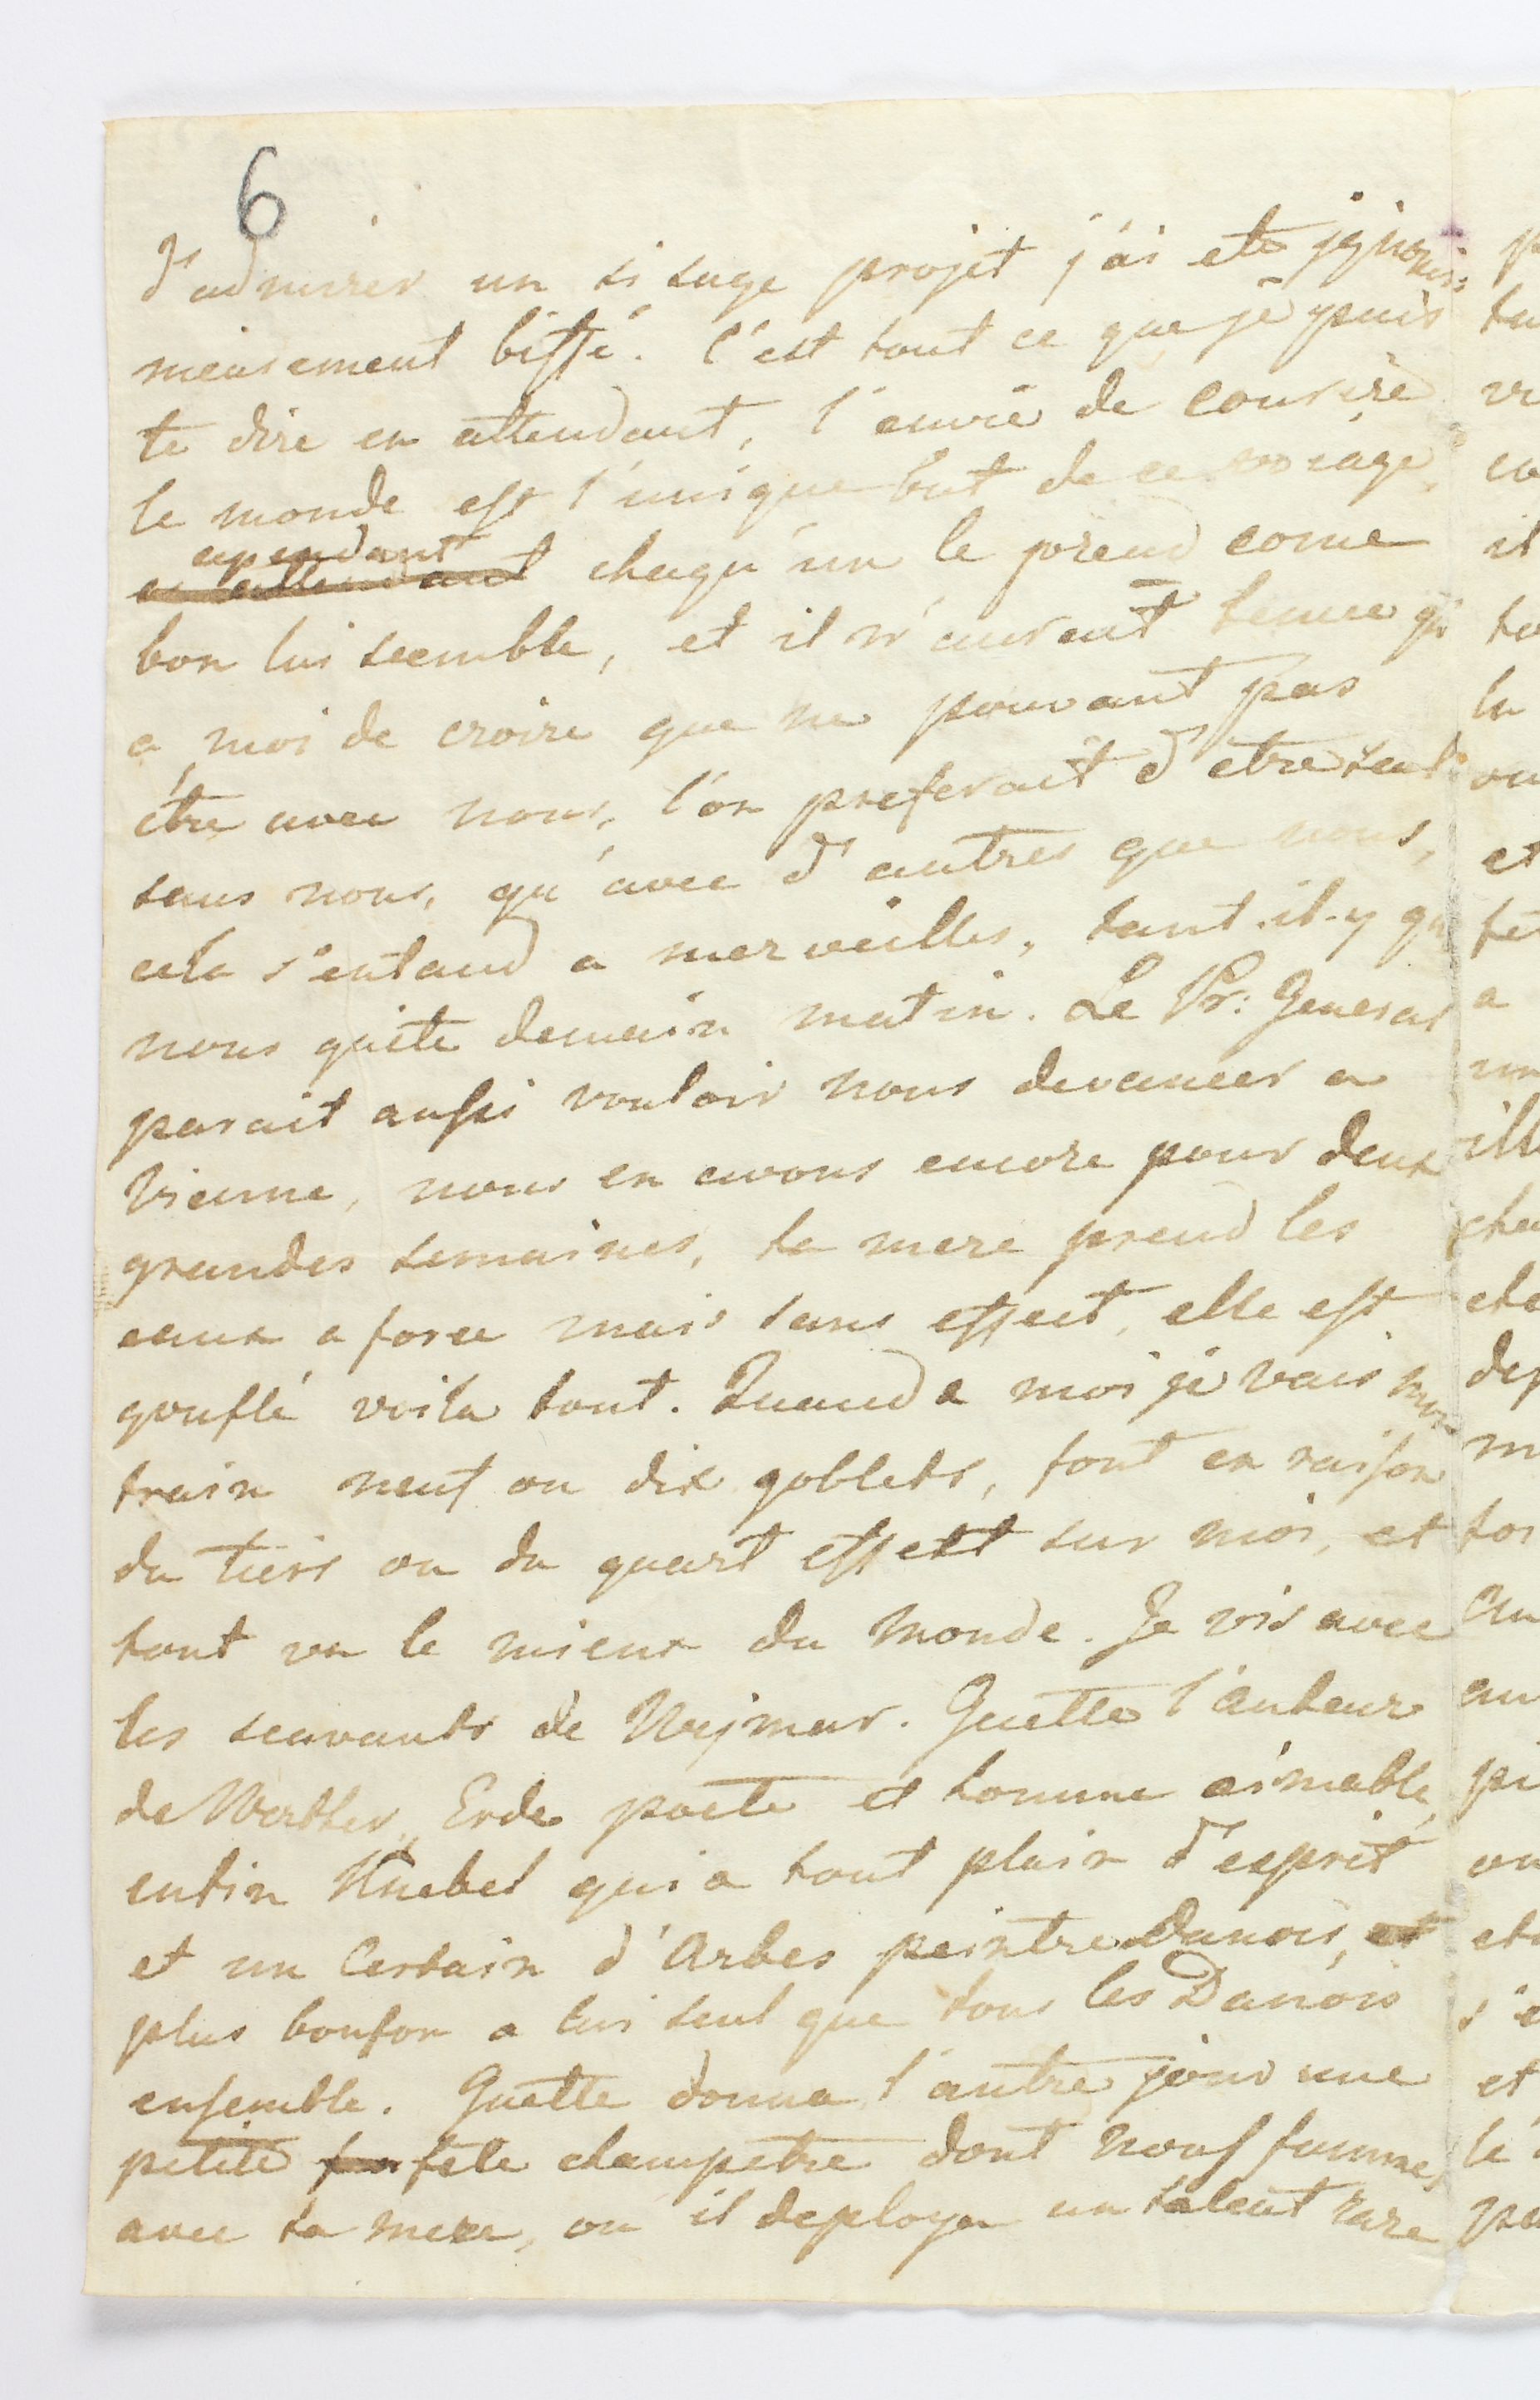 6
d'admirer un si sage projet j'ai ete jgnomi:
nieusement biffé. C'est tout ce que je puis
te dire en attendant, l'envie de courire
le monde est l'unique but de ce voiage,
cependant
en attendant chaqu'un le prend come
bon lui seemble, et il n'auroit tenue qu'
a moi de croire que ne pouvant pas
être avec nous, l'on preferait d'etre seul
sans nous, qu'avec d'autres que nous,
cela s'entand a merveilles, tant-il-y qu
nous quite demain matin. Le Pr: General
parait aussi vouloir nous devancer a
Vienne, nous en avons encore pour deux
grandes semaines, ta mere prend les
eaux a force mais sans effect, elle est
gonflé voila tout. Quand a moi je vais mon
train neuf ou dix goblets, font en raison
du tiers ou du quart effect sur moi, et
tout va le mieux du monde. Je vis avec
les scavants de Wejmar. Guette l'auteur
de Werther, Erde poete et homme aimable,
enfin Knebel qui a tout plain d'esprit
et un certain d'Arbes peintre Danois, et
plus boufon a lui seul que tous les Danois
ensemble. Guette donna l'autre jour une
petite fete champetre dont nous fumme,
avec ta mere, ou il deploya un talent rare